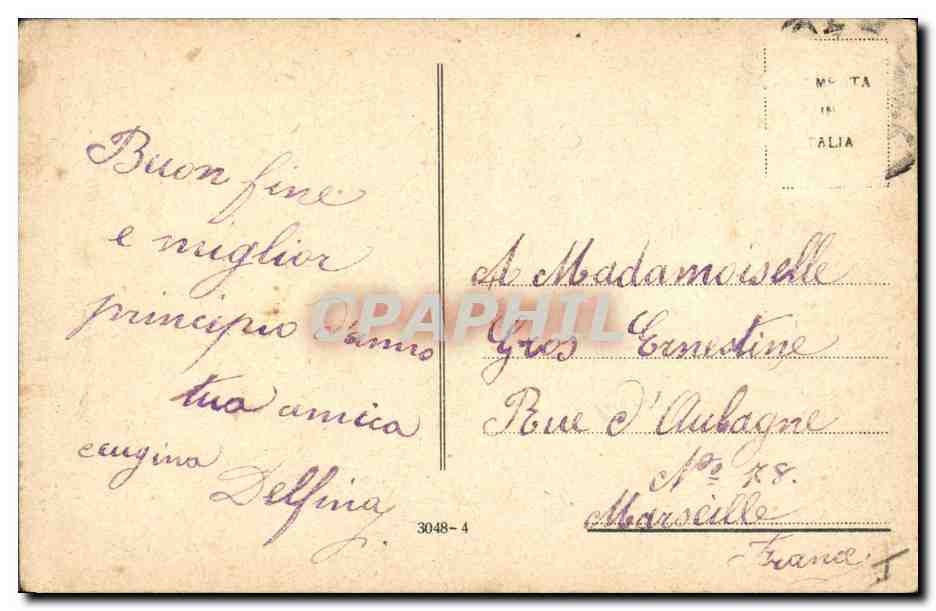 Buon fine
e miglior
principio d'anno
tua amica
cugina
Delfina
3048-4
IN
A Madamoiselle
Gros Ernestine
Rue d'Aubagne
Nº 78.
Marseille
France
CPAPHIL